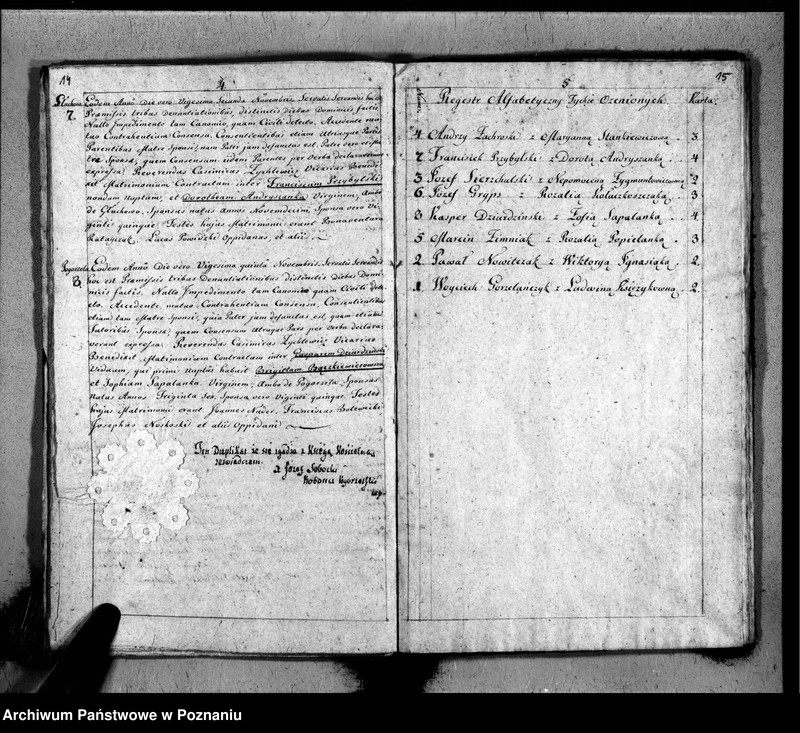 14
4
Głuchowo.
7.
Eodem Anno Die vero Vigesima Secunda Novembris. Servatis Servandis hoc est
Præmissis tribus Denuntiationibus, distinctis diebus Dominicis factis
Nullo Impedimento tam Canonico, quam Civili detecto, Accedente mu-
tuo Contrahentium Consensu, Consentientibus etiam Utriusque Partis
Parentibus Matre Sponsi, nam Pater jam defunctus est, Patre vero et Ma-
tre Sponsæ, quem Consensum iidem Parentes per Verba declaraverunt
expressa. Reverendus Casimirus Zychlewicz Vicarius Benedi-
xit Matrimonium Contractum inter Franciscum Przybylski
nondum Nuptum, et Dorotheam Andryszanka Virginem, Ambo
de Głuchowo, Sponsus natus Annos Novemdecim, Sponsa vero Vi-
ginti quinque. Testes hujus Matrimonii erant Bonaventura
Ratajczak, Lucas Powidzki Oppidanus, et alii.
Pogorzela
8.
Eodem Anno Die vero Vigesima quinta Novembris Servatis Servandis
hoc est Præmissis tribus Denuntiationibus distinctis Diebus Domi-
nicis factis. Nullo Impedimento tam Canonico quam Civili dete-
cto, Accedente, mutuo Contrahentium Consensu, Consentientibus
etiam tam Matre Sponsi, quia Pater jam defunctus est, quam etiam
Tutoribus Sponsæ; quem Consensum Utraque Pars per Verba declara-
verunt expressa. Reverendus Casimirus Zychlewicz Vicarius
Benedixit Matrimonium Contractum inter Gasparem Dzierdzinski
Viduum, qui primi Nuptus habuit Brigittam
et Sophiam Sapalanka Virginem, Ambo de Pogorzela, Sponsus
natus Annos Triginta Sex, Sponsa vero Viginti quinque. Testes
hujus Matrimonii erant Joannes Nader, Franciscus Bolewicki
Josephus Noskoski et alii Oppidani
Ten Duplikat że się zgadza z Księgą Kościelną
zaświadczam.
X Jozef Sobocki
Proboszcz Pogorzelski
15
5
Regestr Alfabetyczny Tychże Ożenionych. Karta.
4 Andrzy Zachroski z Maryanną Stankiewiczową 3
7 Franciszek Przybylski z Dorotą Andryszanką 4
3 Jozef Sierzchalski z Nepomoceną Zygmuntowiczową 2
6 Jozef Gryps z Rozalią Kołuczkoszczaką 3
8 Kasper Dzierdziński z Zofią Sapalanką 4
5 Marcin Zimniak z Rozalią Popielanką 3
2 Paweł Nowitczak z Wiktoryą Ignasiąką 2
1 Woyciech Gorzelańczyk z Ludwiną Xsiężykówną 2
Archiwum Państwowe w Poznaniu